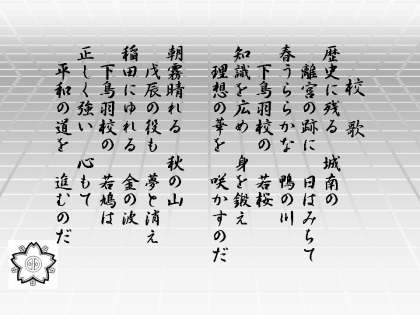 校歌
歴史に残る 城南の
離宮の跡に 日はみちて
春うららかな 鴨の川
下鳥羽校の 若桜
知識を広め 身を鍛え
理想の華を 咲かすのだ
朝霧晴れる 秋の山
戊辰の役も 夢と消え
稲田にゆれる 金の波
下鳥羽校の 若鳩は
正しく強い 心もて
平和の道を 進むのだ